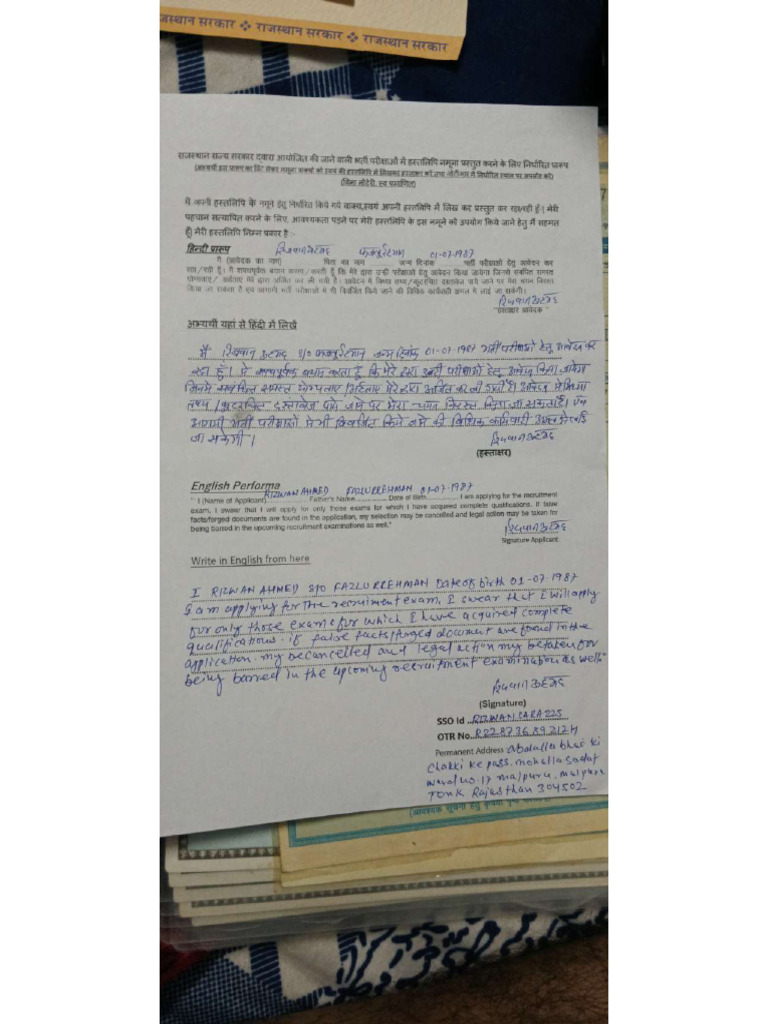 राजस्थान सरकार ❖ राजस्थान सरकार ❖ राजस्थान सरकार
राजस्थान राज्य सरकार द्वारा आयोजित की जाने वाली भर्ती परीक्षाओं में हस्तलिपि नमूना प्रस्तुत करने के लिए निर्धारित प्रारूप
(अभ्यर्थी इस प्रारूप का प्रिंट लेकर नमूना वाक्यों को स्वयं की हस्तलिपि में लिखकर हस्ताक्षर करें तथा में निर्धारित स्थान पर अपलोड करें)
(बिना नोटेरी, स्व प्रमाणित)
मैं अपनी हस्तलिपि के नमूने हेतु निर्धारित किये गये वाक्य,स्वयं अपनी हस्तलिपि में लिख कर प्रस्तुत कर रहा/रही हूँ। मेरी
पहचान सत्यापित करने के लिए, आवश्यकता पड़ने पर मेरी हस्तलिपि के इस नमूने को उपयोग किये जाने हेतु मैं सहमत
हूँ। मेरी हस्तलिपि निम्न प्रकार है :-
हिन्दी प्रारूप रिजवान अहमद फजलुर्रहमान 01-07-1987
मैं (आवेदक का नाम) पिता का नाम जन्म दिनांक भर्ती परीक्षाओं हेतु आवेदन कर
रहा /रही हूं। मैं शपथपूर्वक बयान करता /करती हूँ कि मेरे द्वारा उन्हीं परीक्षाओं हेतु आवेदन किया जायेगा जिनसे संबंधित समस्त
योग्यताएं / अर्हताएं मेरे द्वारा अर्जित कर ली गयी है। आवेदन में मिथ्या तथ्य /कूटरचित दस्तावेज पाये जाने पर मेरा चयन निरस्त
किया जा सकता है एवं आगामी भर्ती परीक्षाओं में भी विवर्जित किये जाने की विधिक कार्यवाही अमल में लाई जा सकेगी।
रिजवान अहमद
"हस्ताक्षर आवेदक"
अभ्यर्थी यहां से हिंदी में लिखें
मैं रिजवान अहमद S/O फजलुर्रहमान जन्म दिनांक 01-07-1987 भर्ती परीक्षाओं हेतु आवेदन कर
रहा हूँ। मैं शपथपूर्वक बयान करता हूँ कि मेरे द्वारा उन्हीं परीक्षाओं हेतु आवेदन किया जायेगा
जिनसे संबंधित समस्त योग्यताएं /अर्हताएं मेरे द्वारा अर्जित कर ली गयी है। आवेदन में मिथ्या
तथ्य /कूटरचित दस्तावेज पाये जाने पर मेरा चयन निरस्त किया जा सकता है। एवं
आगामी भर्ती परीक्षाओं में भी विवर्जित किये जाने की विधिक कार्यवाही अमल में लाई
जा सकेगी।
रिजवान अहमद
(हस्ताक्षर)
English Performa RIZWAN AHMED FAZLURREHMAN 01-07-1987
" I (Name of Applicant) Father's Name Date of Birth I am applying for the recruitment
exam, I swear that I will apply for only those exams for which I have acquired complete qualifications. If false
facts/forged documents are found in the application, my selection may be cancelled and legal action may be taken for
being barred in the upcoming recruitment examinations as well."
रिजवान अहमद
Signature Applicant
Write in English from here
I RIZWAN AHMED S/O FAZLURREHMAN Date of birth 01-07-1987
I am applying for the recruiment exam, I swear that I will apply
for only those exams for which I have acquired complete
qualifications. if false facts/forged document are found in the
application. my be cancelled and legal action my be taken for
being barred in the upcoming recruitment examination as well"
रिजवान अहमद
(Signature)
SSO Id RIZWANCARA225
OTR No. R228736892124
Permanent Address Abdulla bhai ki
Chakki ke pass. mohalla sadat
ward no. 17 malpura. malpura
Tonk Rajasthan 304502